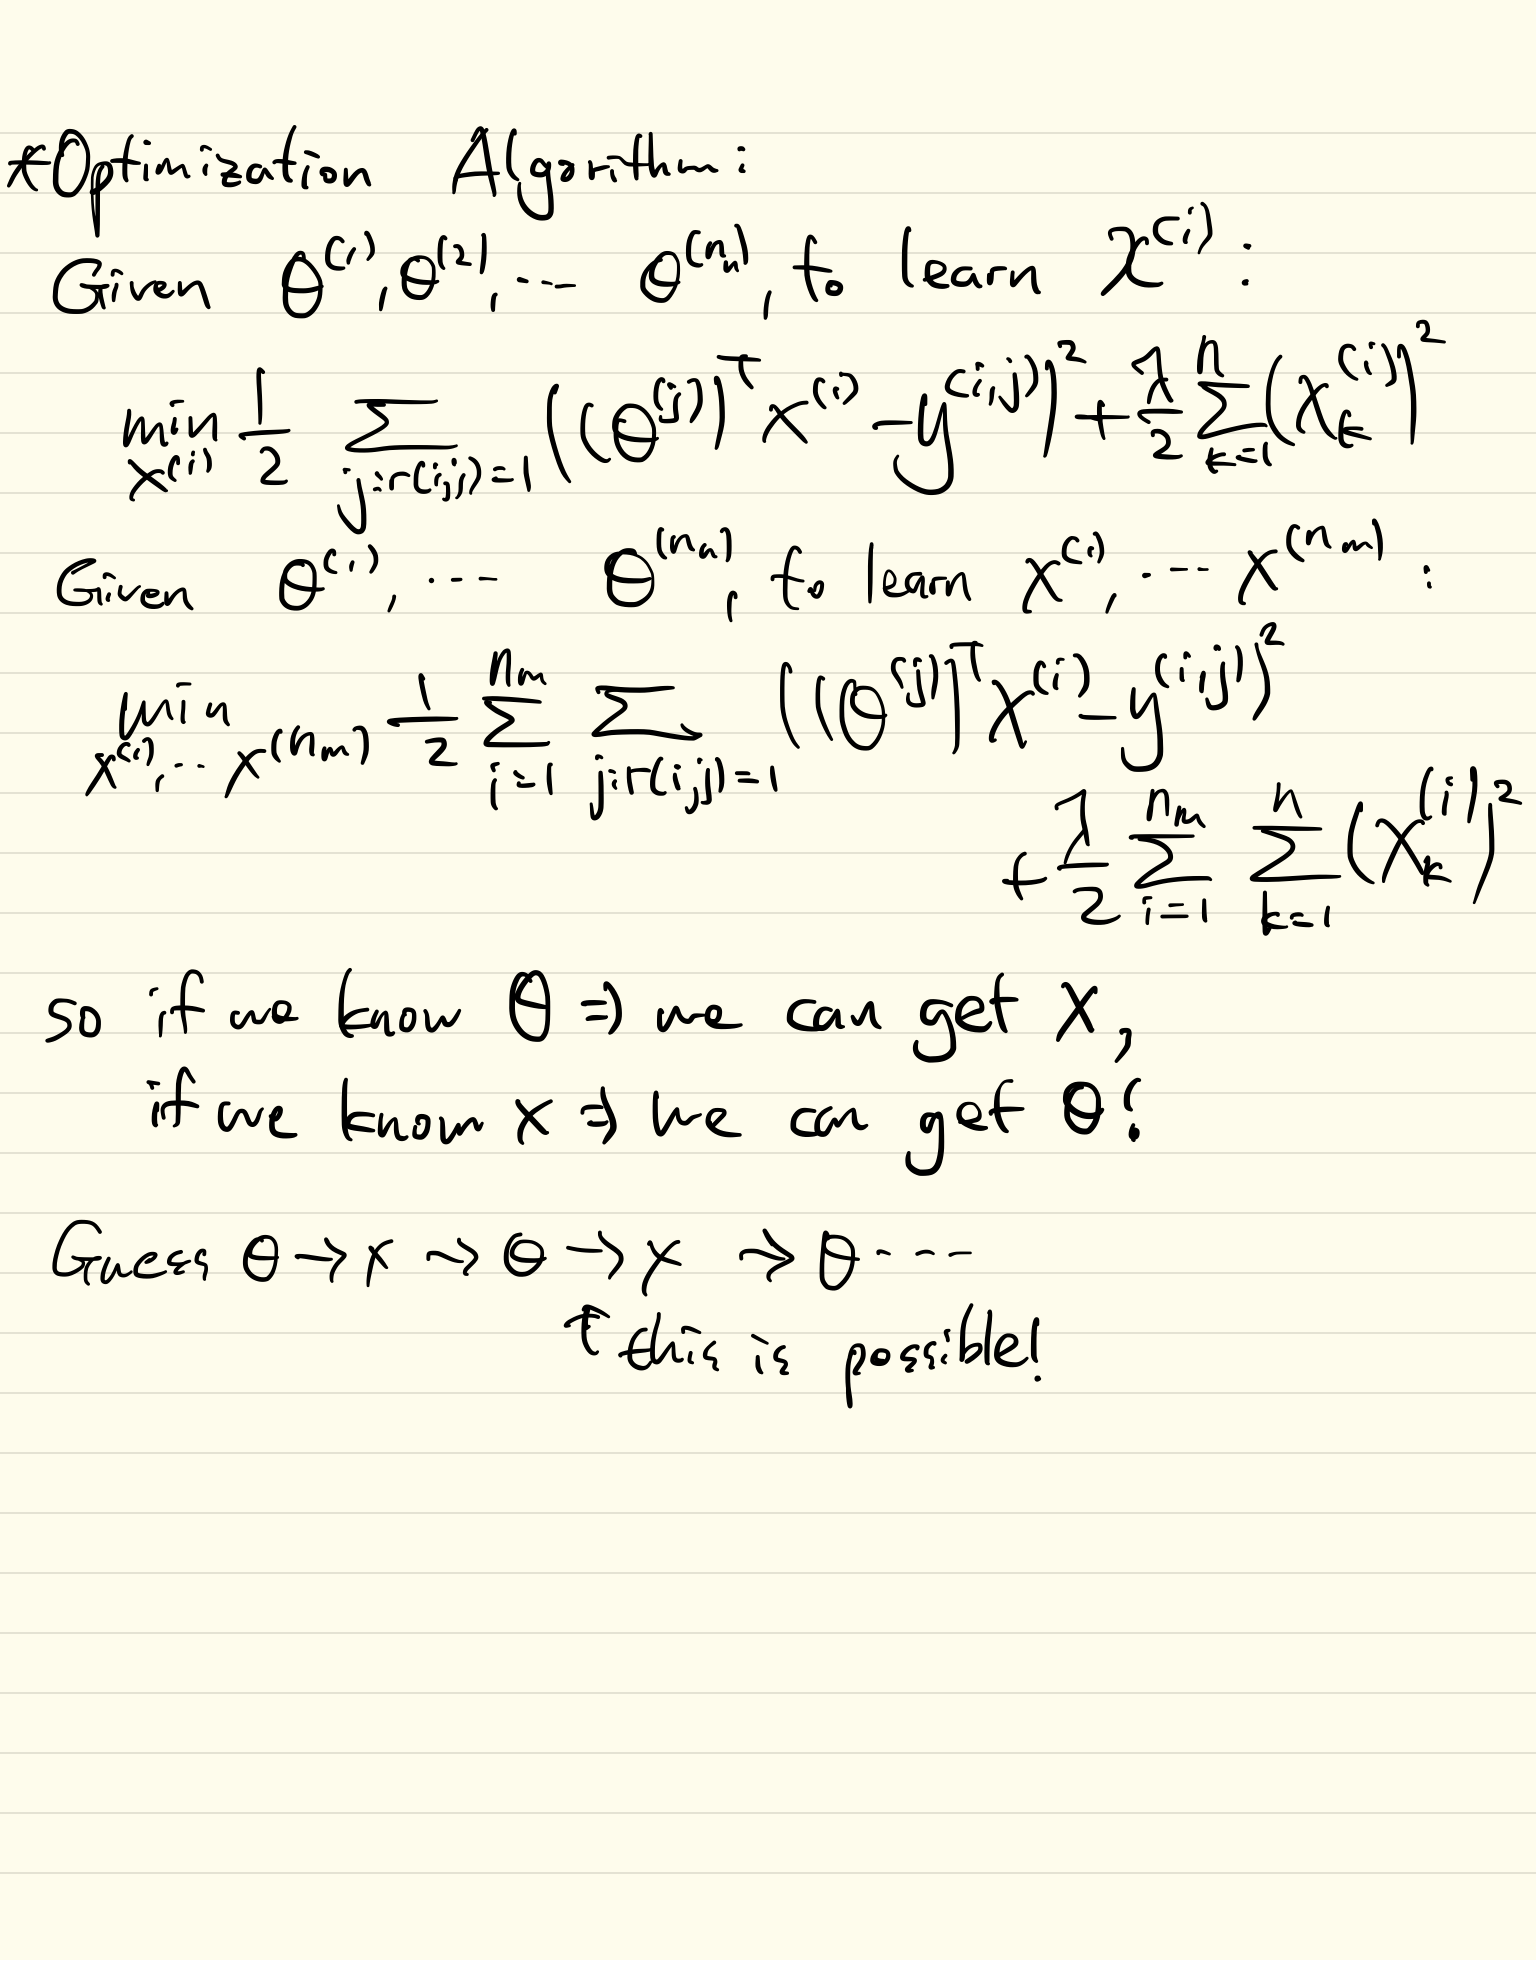 *Optimization Algorithm:
Given θ^(1), θ^(2), ... θ^(n_u), to learn x^(i):
min_{x^(i)} 1/2 Σ_{j:r(i,j)=1} ((θ^(j))^T x^(i) - y^(i,j))^2 + λ/2 Σ_{k=1}^{n} (x_k^(i))^2
Given θ^(1), ... θ^(n_u), to learn x^(1), ... x^(n_m) :
min_{x^(1), ... x^(n_m)} 1/2 Σ_{i=1}^{n_m} Σ_{j:r(i,j)=1} ((θ^(j))^T x^(i) - y^(i,j))^2
+ λ/2 Σ_{i=1}^{n_m} Σ_{k=1}^{n} (x_k^(i))^2
so if we know θ ⇒ we can get x,
if we know x ⇒ we can get θ!
Guess θ → x → θ → x → θ ----
↑ this is possible!